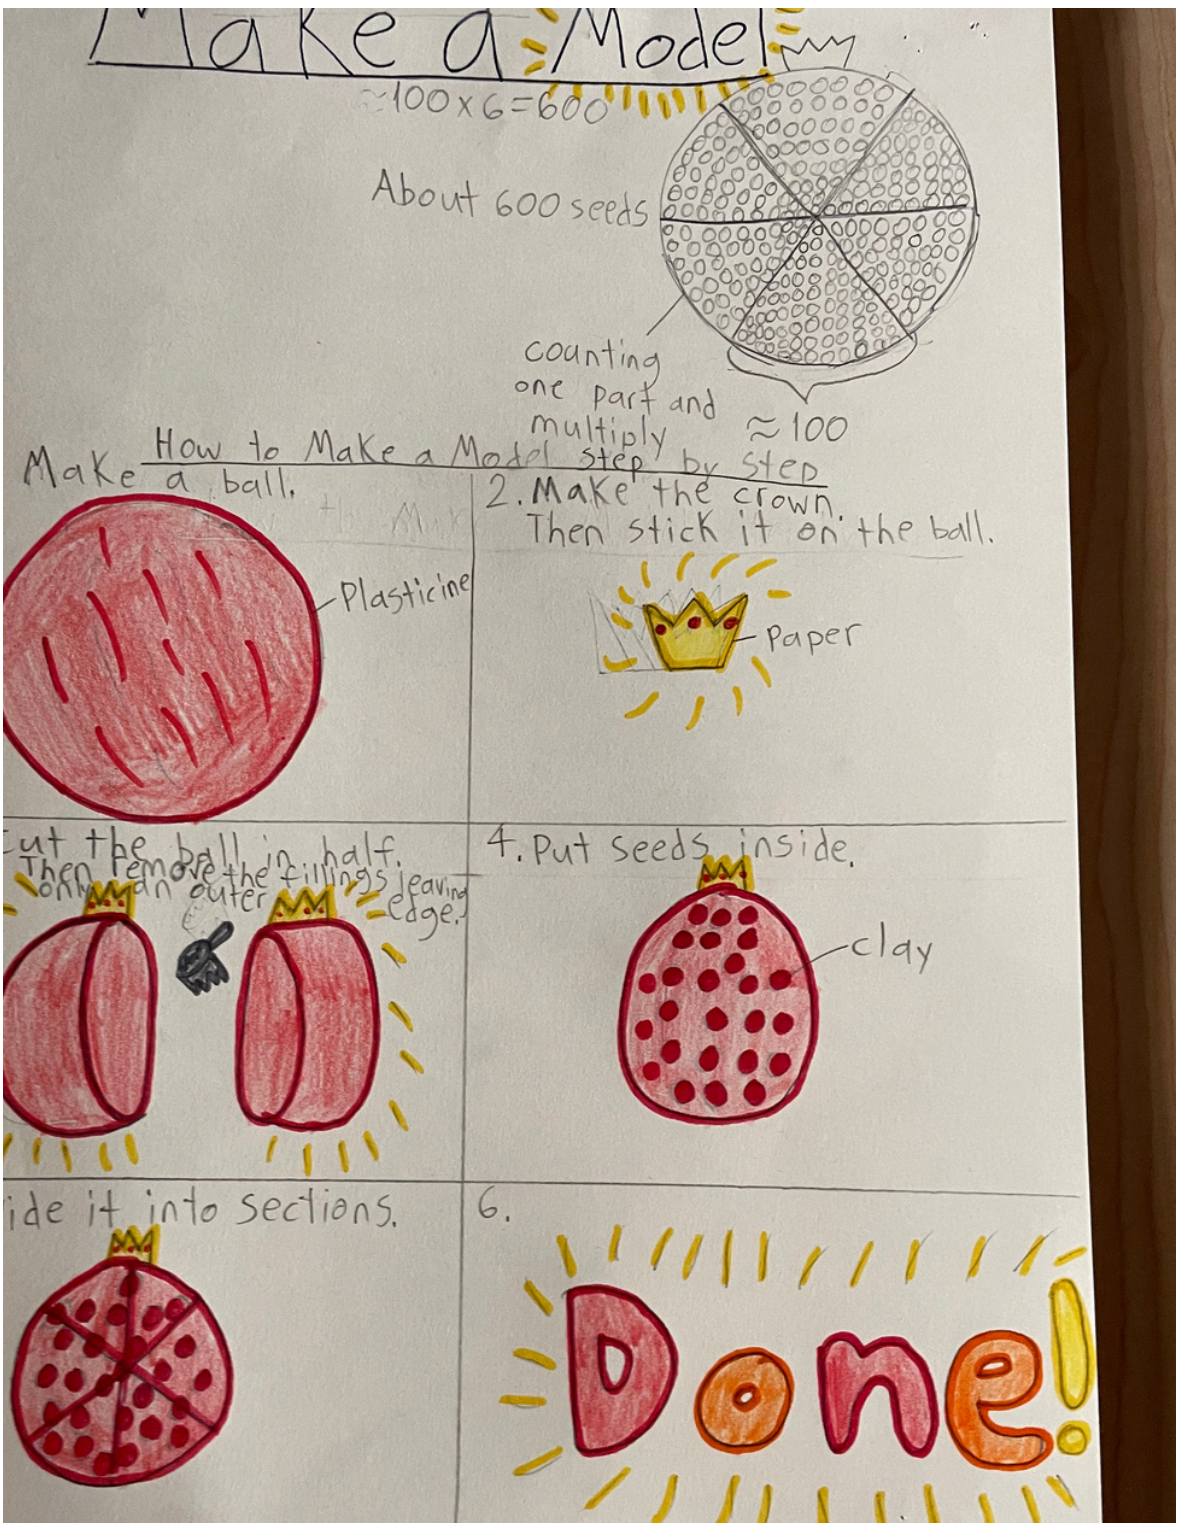 Make a Model
≈100 x 6 = 600
About 600 seeds
counting
one part and
multiply
≈100
How to Make a Model step by step
Make a ball.
Plasticine
2. Make the crown.
Then stick it on the ball.
Paper
Cut the ball in half.
Then remove the fillings leaving
only an outer edge.
4. Put seeds inside.
clay
ide it into sections.
6.
Done!